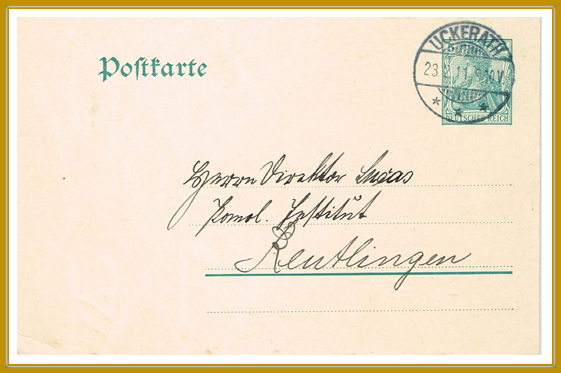 UCKERATH
23.2.11
DEUTSCHES REICH
Postkarte
Herrn Direktor Lucas
Pomol. Institut
Reutlingen